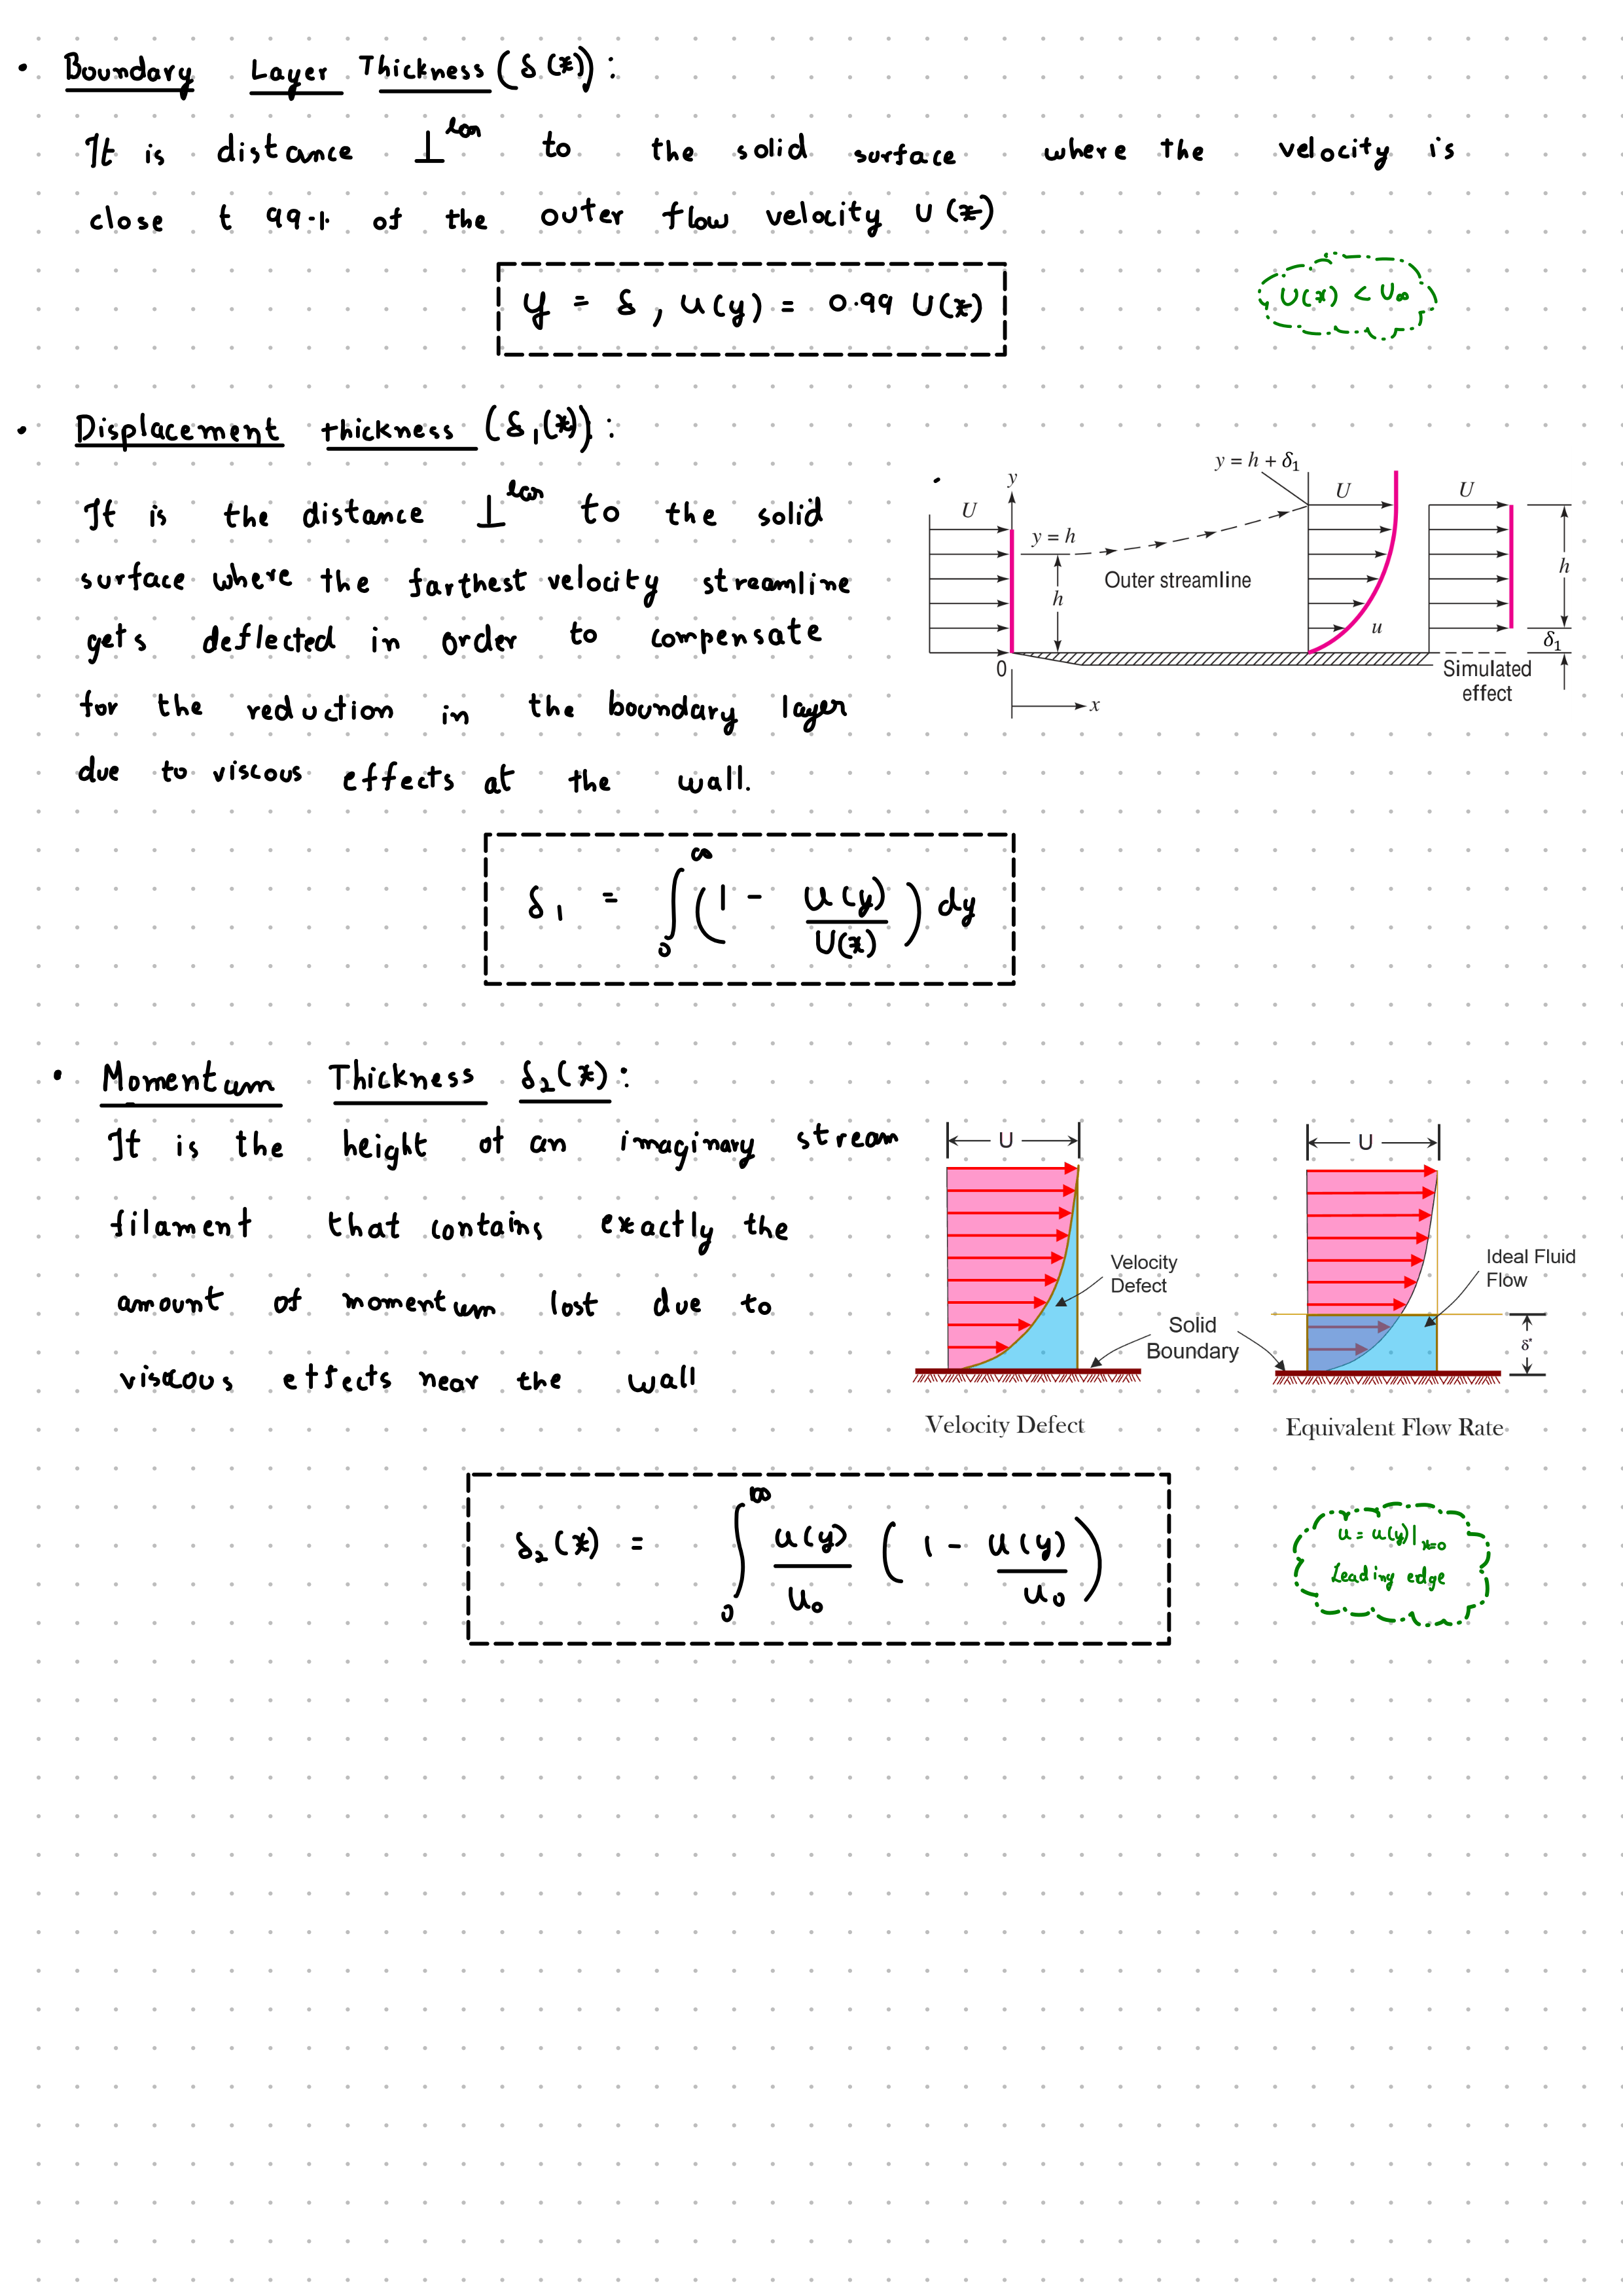 • Boundary Layer Thickness (δ(x)) :
It is distance ⊥lar to the solid surface where the velocity is
close t 99.1. of the outer flow velocity U(x)
y = δ , u(y) = 0.99 U(x)
U(x) < U∞
• Displacement thickness (δ₁(x)) :
It is the distance ⊥lar to the solid
surface where the farthest velocity streamline
gets deflected in order to compensate
for the reduction in the boundary layer
due to viscous effects at the wall.
y = h + δ₁
y
U
U
U
y = h
h
Outer streamline
h
u
δ₁
0
Simulated
effect
x
δ₁ = ∫₀^∞ (1 - u(y)/U(x)) dy
• Momentum Thickness δ₂(x) :
It is the height of an imaginary stream
filament that contains exactly the
amount of momentum lost due to
viscous effects near the wall
U
U
Velocity
Defect
Ideal Fluid
Flow
Solid
Boundary
δ*
Velocity Defect
Equivalent Flow Rate
δ₂(x) = ∫₀^∞ u(y)/u₀ (1 - u(y)/u₀)
u = u(y)|x=0
Leading edge